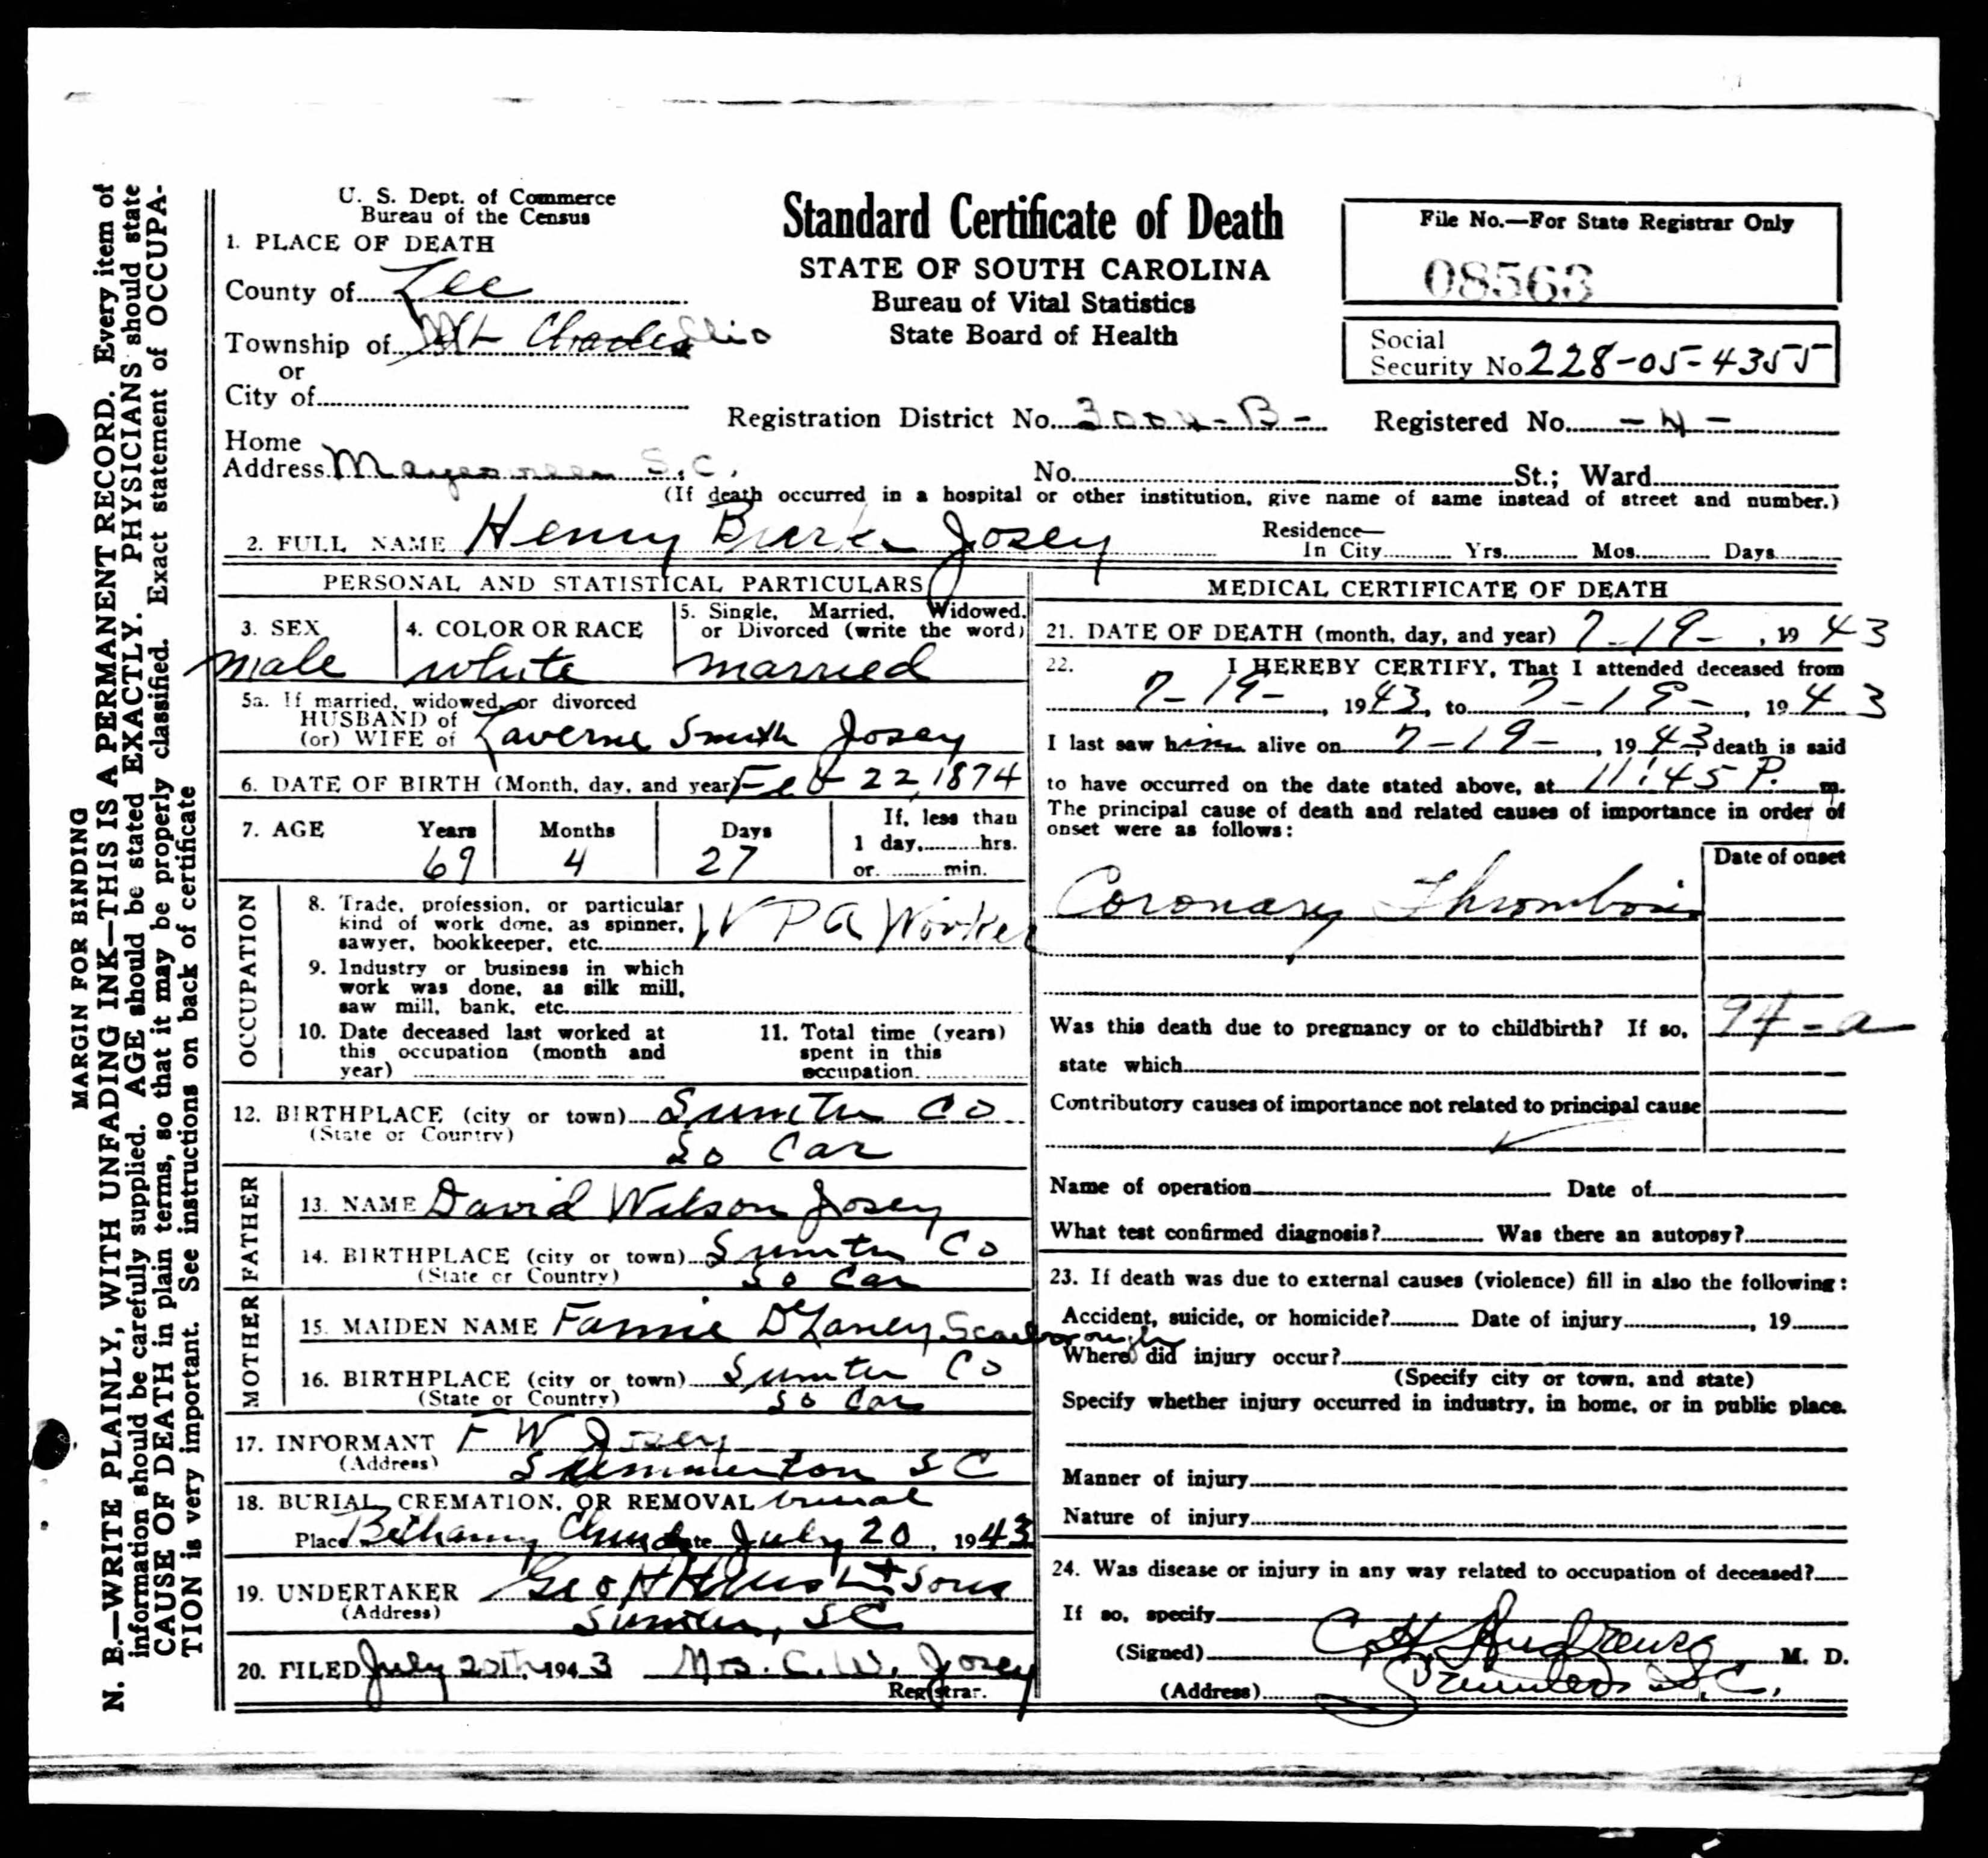 MARGIN FOR BINDING
N. B.—WRITE PLAINLY, WITH UNFADING INK—THIS IS A PERMANENT RECORD. Every item of
information should be carefully supplied. AGE should be stated EXACTLY. PHYSICIANS should state
CAUSE OF DEATH in plain terms, so that it may be properly classified. Exact statement of OCCUPA-
TION is very important. See instructions on back of certificate
U. S. Dept. of Commerce
Bureau of the Census
Standard Certificate of Death
STATE OF SOUTH CAROLINA
Bureau of Vital Statistics
State Board of Health
File No.—For State Registrar Only
08563
Social
Security No 228-05-4355
1. PLACE OF DEATH
County of Lee
Township of Mt Charles
or
City of
Registration District No. 3004-B- Registered No. -4-
Home
Address S.C. No. St.; Ward
(If death occurred in a hospital or other institution, give name of same instead of street and number.)
2. FULL NAME Henry Josey
Residence—
In City Yrs. Mos. Days
PERSONAL AND STATISTICAL PARTICULARS
3. SEX
male
4. COLOR OR RACE
white
5. Single, Married, Widowed,
or Divorced (write the word)
married
5a. If married, widowed, or divorced
HUSBAND of
(or) WIFE of Laverne Smith Josey
6. DATE OF BIRTH (Month, day, and year) Feb 22, 1874
7. AGE Years Months Days If, less than
1 day, hrs.
or min.
69 4 27
OCCUPATION
8. Trade, profession, or particular
kind of work done, as spinner,
sawyer, bookkeeper, etc. WPA Worker
9. Industry or business in which
work was done, as silk mill,
saw mill, bank, etc.
10. Date deceased last worked at
this occupation (month and
year)
11. Total time (years)
spent in this
occupation
12. BIRTHPLACE (city or town) Sumter Co
(State or Country) So Car
FATHER
13. NAME David Wilson Josey
14. BIRTHPLACE (city or town) Sumter Co
(State or Country) So Car
MOTHER
15. MAIDEN NAME Fannie DeLaney Scarborough
16. BIRTHPLACE (city or town) Sumter Co
(State or Country) So Car
17. INFORMANT F W Josey
(Address) Summerton SC
18. BURIAL, CREMATION, OR REMOVAL burial
Place Bethany Church Date July 20, 1943
19. UNDERTAKER Geo H Hurst + Sons
(Address) Sumter, SC
20. FILED July 20th, 1943 Mrs. C. W. Josey
Registrar.
MEDICAL CERTIFICATE OF DEATH
21. DATE OF DEATH (month, day, and year) 7-19-, 19 43
22. I HEREBY CERTIFY, That I attended deceased from
7-19-, 1943, to 7-19-, 1943
I last saw him alive on 7-19-, 1943, death is said
to have occurred on the date stated above, at 11:45 P. m.
The principal cause of death and related causes of importance in order of
onset were as follows:
Date of onset
Coronary Thrombosis
94-a
Was this death due to pregnancy or to childbirth? If so,
state which
Contributory causes of importance not related to principal cause
Name of operation Date of
What test confirmed diagnosis? Was there an autopsy?
23. If death was due to external causes (violence) fill in also the following:
Accident, suicide, or homicide? Date of injury , 19
Where did injury occur?
(Specify city or town, and state)
Specify whether injury occurred in industry, in home, or in public place.
Manner of injury
Nature of injury
24. Was disease or injury in any way related to occupation of deceased?
If so, specify
(Signed) M. D.
(Address) S.C.